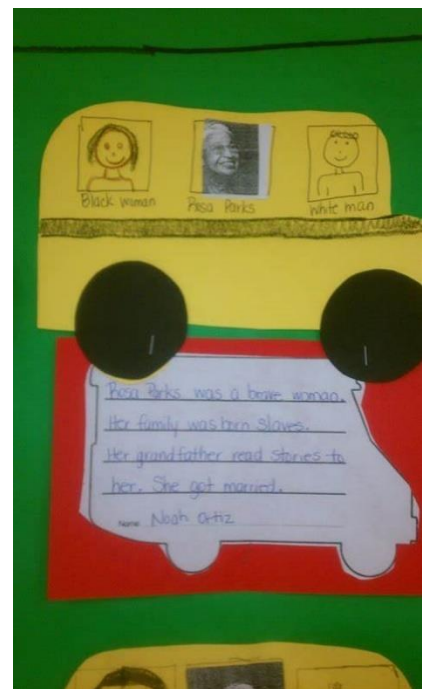 Black woman
Rosa Parks
white man
Rosa Parks was a brave woman.
Her family was born slaves.
Her grandfather read stories to
her. She got married.
Name Noah Ortiz